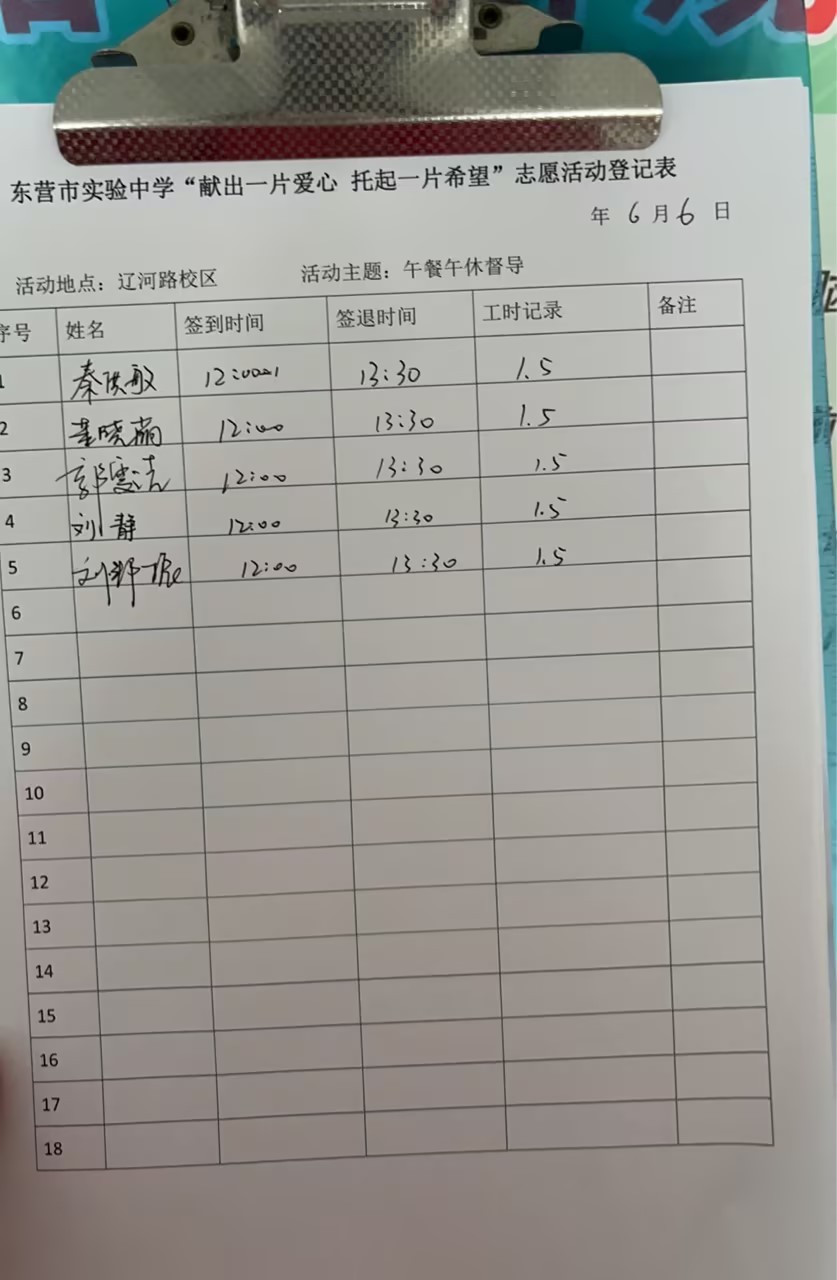 东营市实验中学“献出一片爱心 托起一片希望”志愿活动登记表
年 6 月 6 日
活动地点：辽河路校区 活动主题：午餐午休督导
序号 姓名 签到时间 签退时间 工时记录 备注
1 秦洪敏 12:00 13:30 1.5
2 12:00 13:30 1.5
3 郭雪洁 12:00 13:30 1.5
4 刘静 12:00 13:30 1.5
5 12:00 13:30 1.5
6
7
8
9
10
11
12
13
14
15
16
17
18